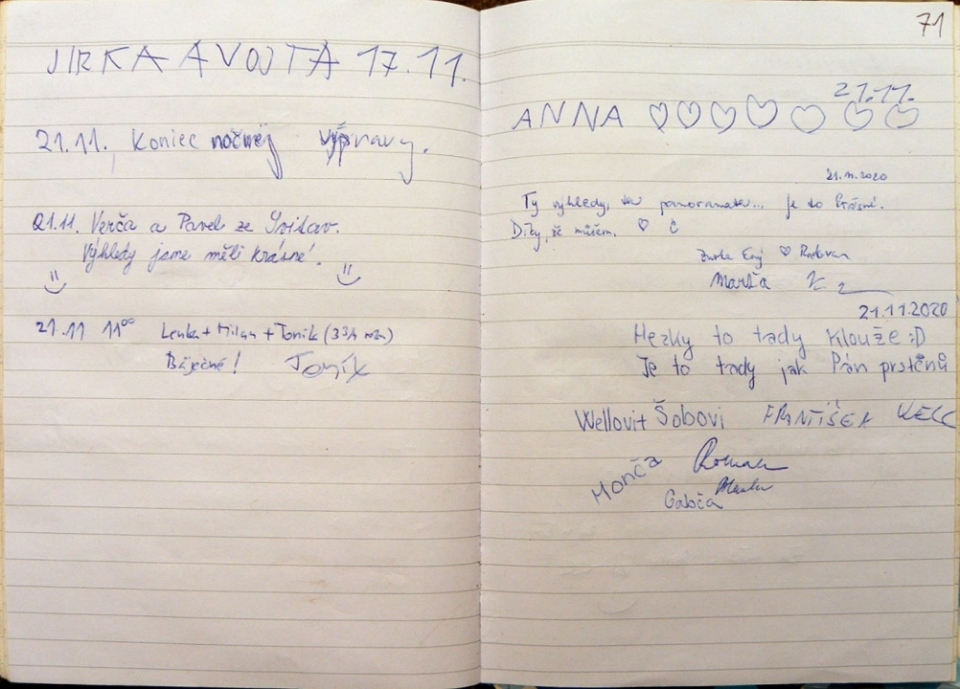 JIRKA A VOJTA 17.11.
21.11. Koniec nočnej výpravy.
21.11. Verča a Pavel ze Svitav.
Výhledy jsme měli krásné!
21.11 11⁰⁰ Lenka + Milan + Toník (3 3/4
Báječné! Toník
71
21.11.
ANNA ♡♡♡♡♡♡♡
21.11.2020
Ty výhledy, ... je to
Díky, že můžem. ♡
♡ Radovan
21.11.2020
Hezky to tady klouže :D
Je to tady jak Pán prstenů
Šobovi FRANTIŠEK
Monča Roman
Gabča